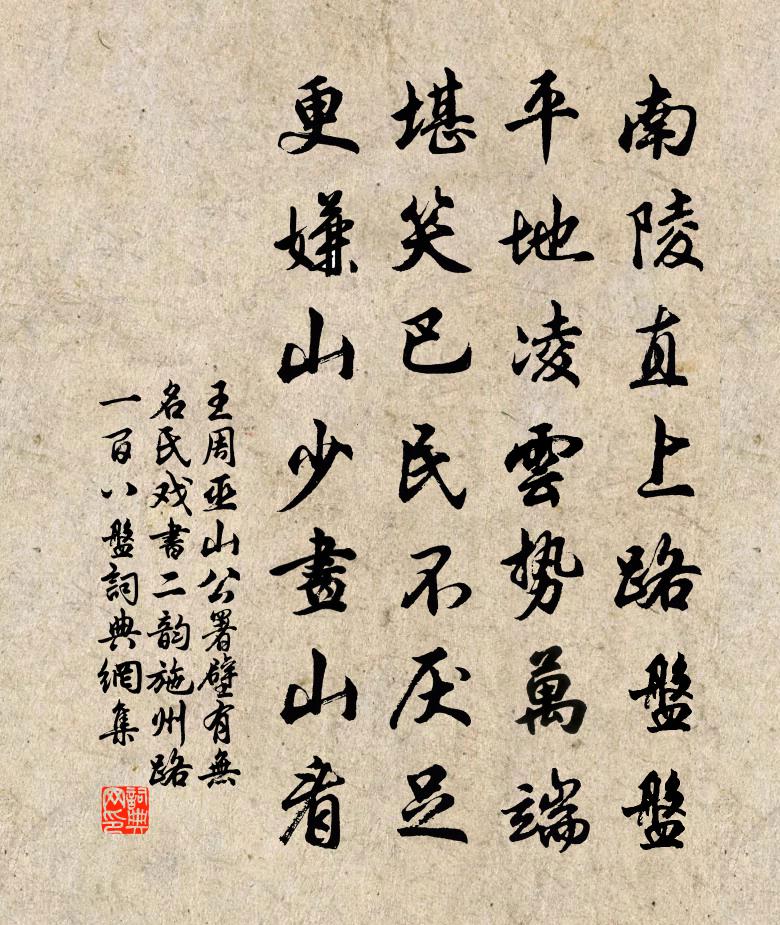 南陵直上路盤盤
平地凌雲勢萬端
堪笑巴民不厌足
更嫌山少畫山看
王周巫山公署壁有無
名氏戏書二韵施州路
一百八盤詞典網集
詞典网印